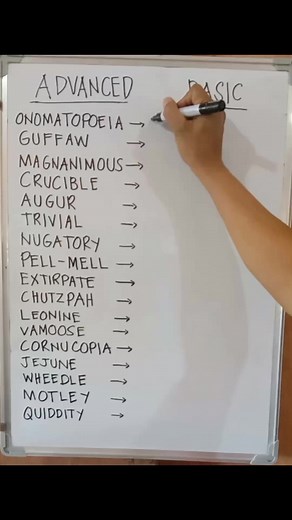 ADVANCED BASIC
ONOMATOPOEIA →
GUFFAW →
MAGNANIMOUS →
CRUCIBLE →
AUGUR →
TRIVIAL →
NUGATORY →
PELL-MELL →
EXTIRPATE →
CHUTZPAH →
LEONINE →
VAMOOSE →
CORNUCOPIA →
JEJUNE →
WHEEDLE →
MOTLEY →
QUIDDITY →